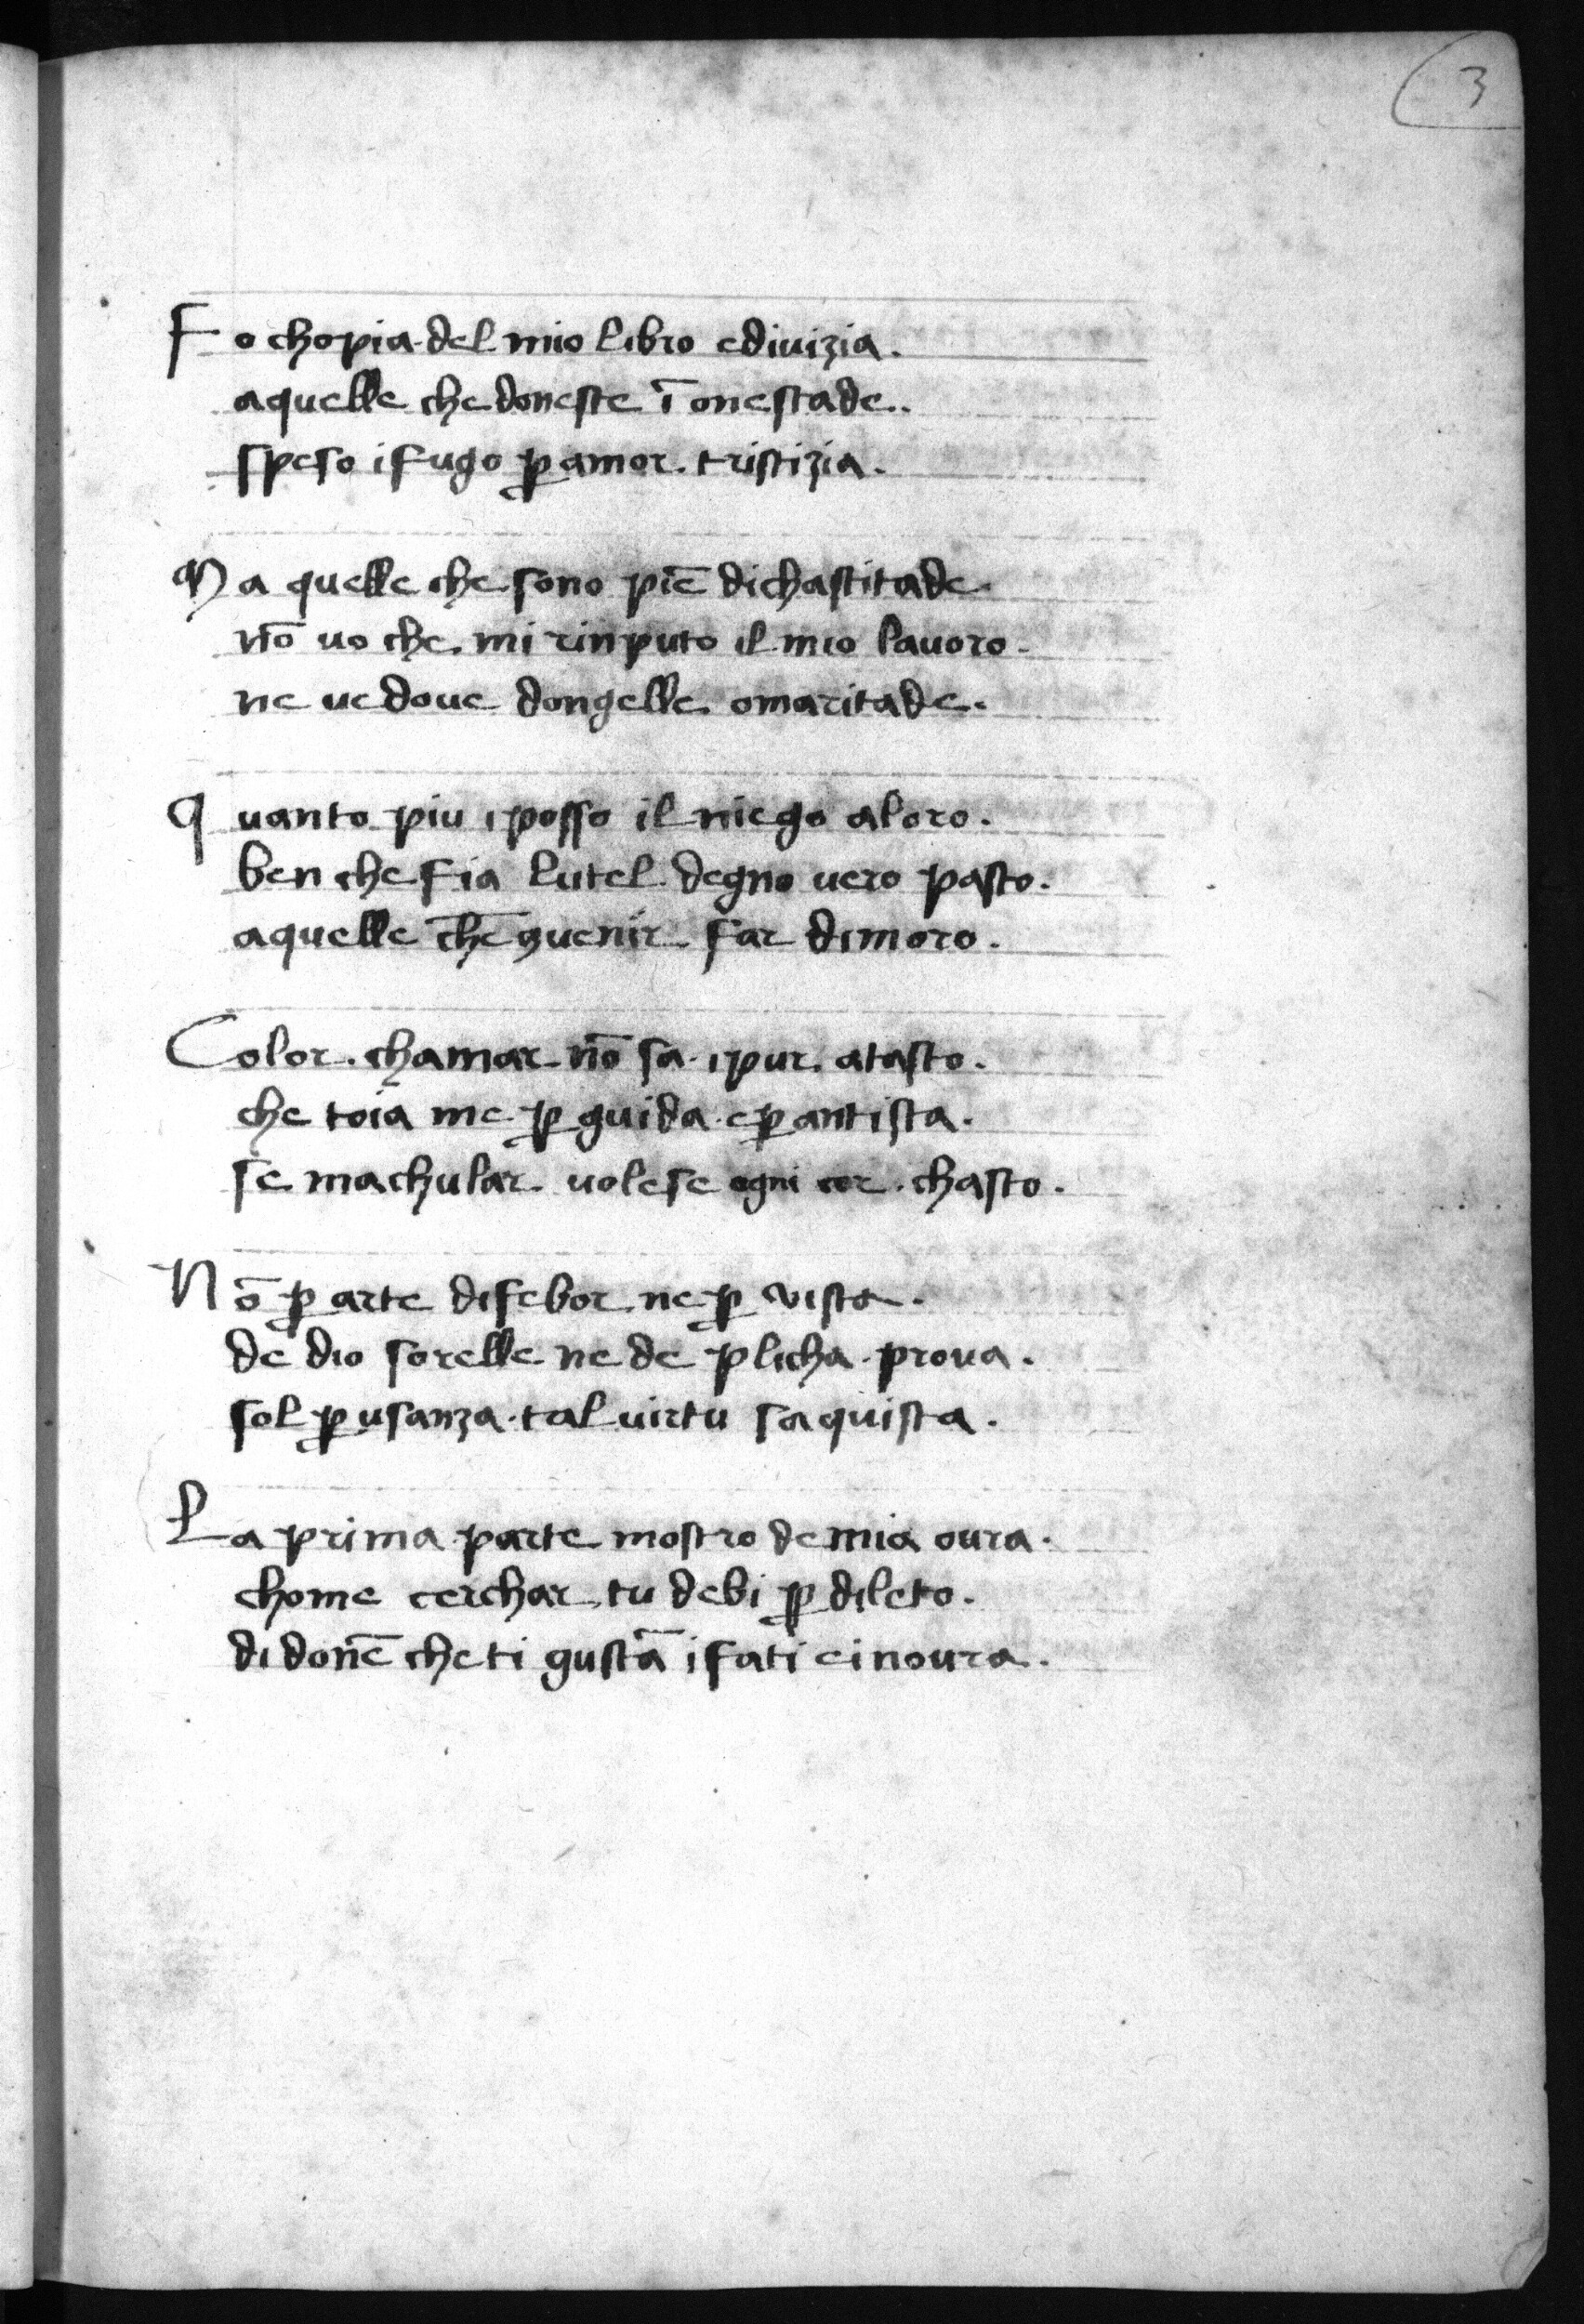 3
Fo chopia del mio libro e divizia.
aquelle che doneste ī onestade..
speso i fugo ꝑ amor. tristizia.
Ma quelle che sono piē di chastitade.
nō uo che. mi rinputo il mio lauoro.
ne uedoue dongelle omaritade.
Quanto piu i posso il niego aloro.
ben che fia lutel degno uero pasto.
aquelle chē guenir far dimoro.
Color. chamar nō sa. i pur. atasto.
che toia me ꝑ guida. e ꝑ antista.
se machular uolese ogni cor. chasto.
Nō ꝑ arte di febor ne ꝑ vista.
de dio sorelle ne de plicha. proua.
sol ꝑ usanza. tal uirtu saquista.
La prima parte mostro de mia oura.
chome cerchar tu debi ꝑ dileto.
di donē che ti gustā i fati e inoura.